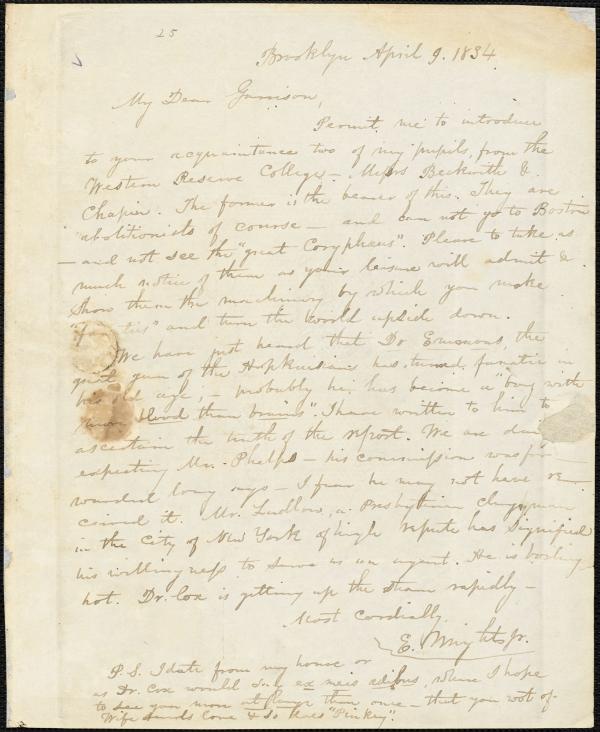 25
Brooklyn April 9. 1834.
My Dear Garrison,
Permit me to introduce
to your acquaintance two of my pupils, from the
Western Reserve College — Messrs Beckwith &
Chapin. The former is the bearer of this. They are
abolitionists of course — and can not go to Boston
— and not see the "great Corypheus". Please to take as
much notice of them as your leisure will admit &
show them the machinery by which you make
and turn the world upside down.
We have just heard that Dr Emmons, the
great gun of the Hopkinsians has turned fanatic in
his old age; — probably he has become a "boy with
more blood than brains". I have written to him to
ascertain the truth of the report. We are
expecting Mr. Phelps — his commission was for-
warded long ago — I fear he may not have re-
ceived it. Mr. Ludlow, a Presbyterian clergyman
in the City of New York of high repute has signified
his willingness to serve as an agent. He is boiling
hot. Dr. Cox is getting up the steam rapidly —
Most cordially
E. Wright Jr.
P.S. I date from my house or
as Dr. Cox would say ex meis edibus, where I hope
to see you more than once — that you wot of.
Wife sends love & so does "Pinkey".